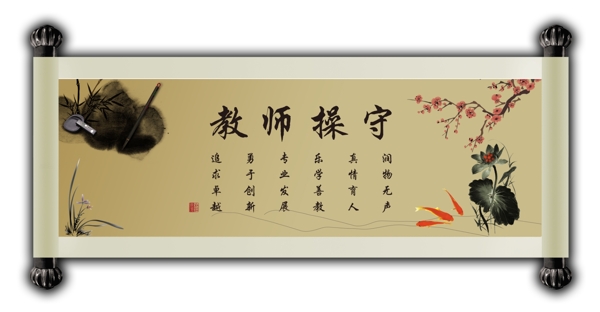 教师操守
润物无声
真情育人
乐学善教
专业发展
勇于创新
追求卓越